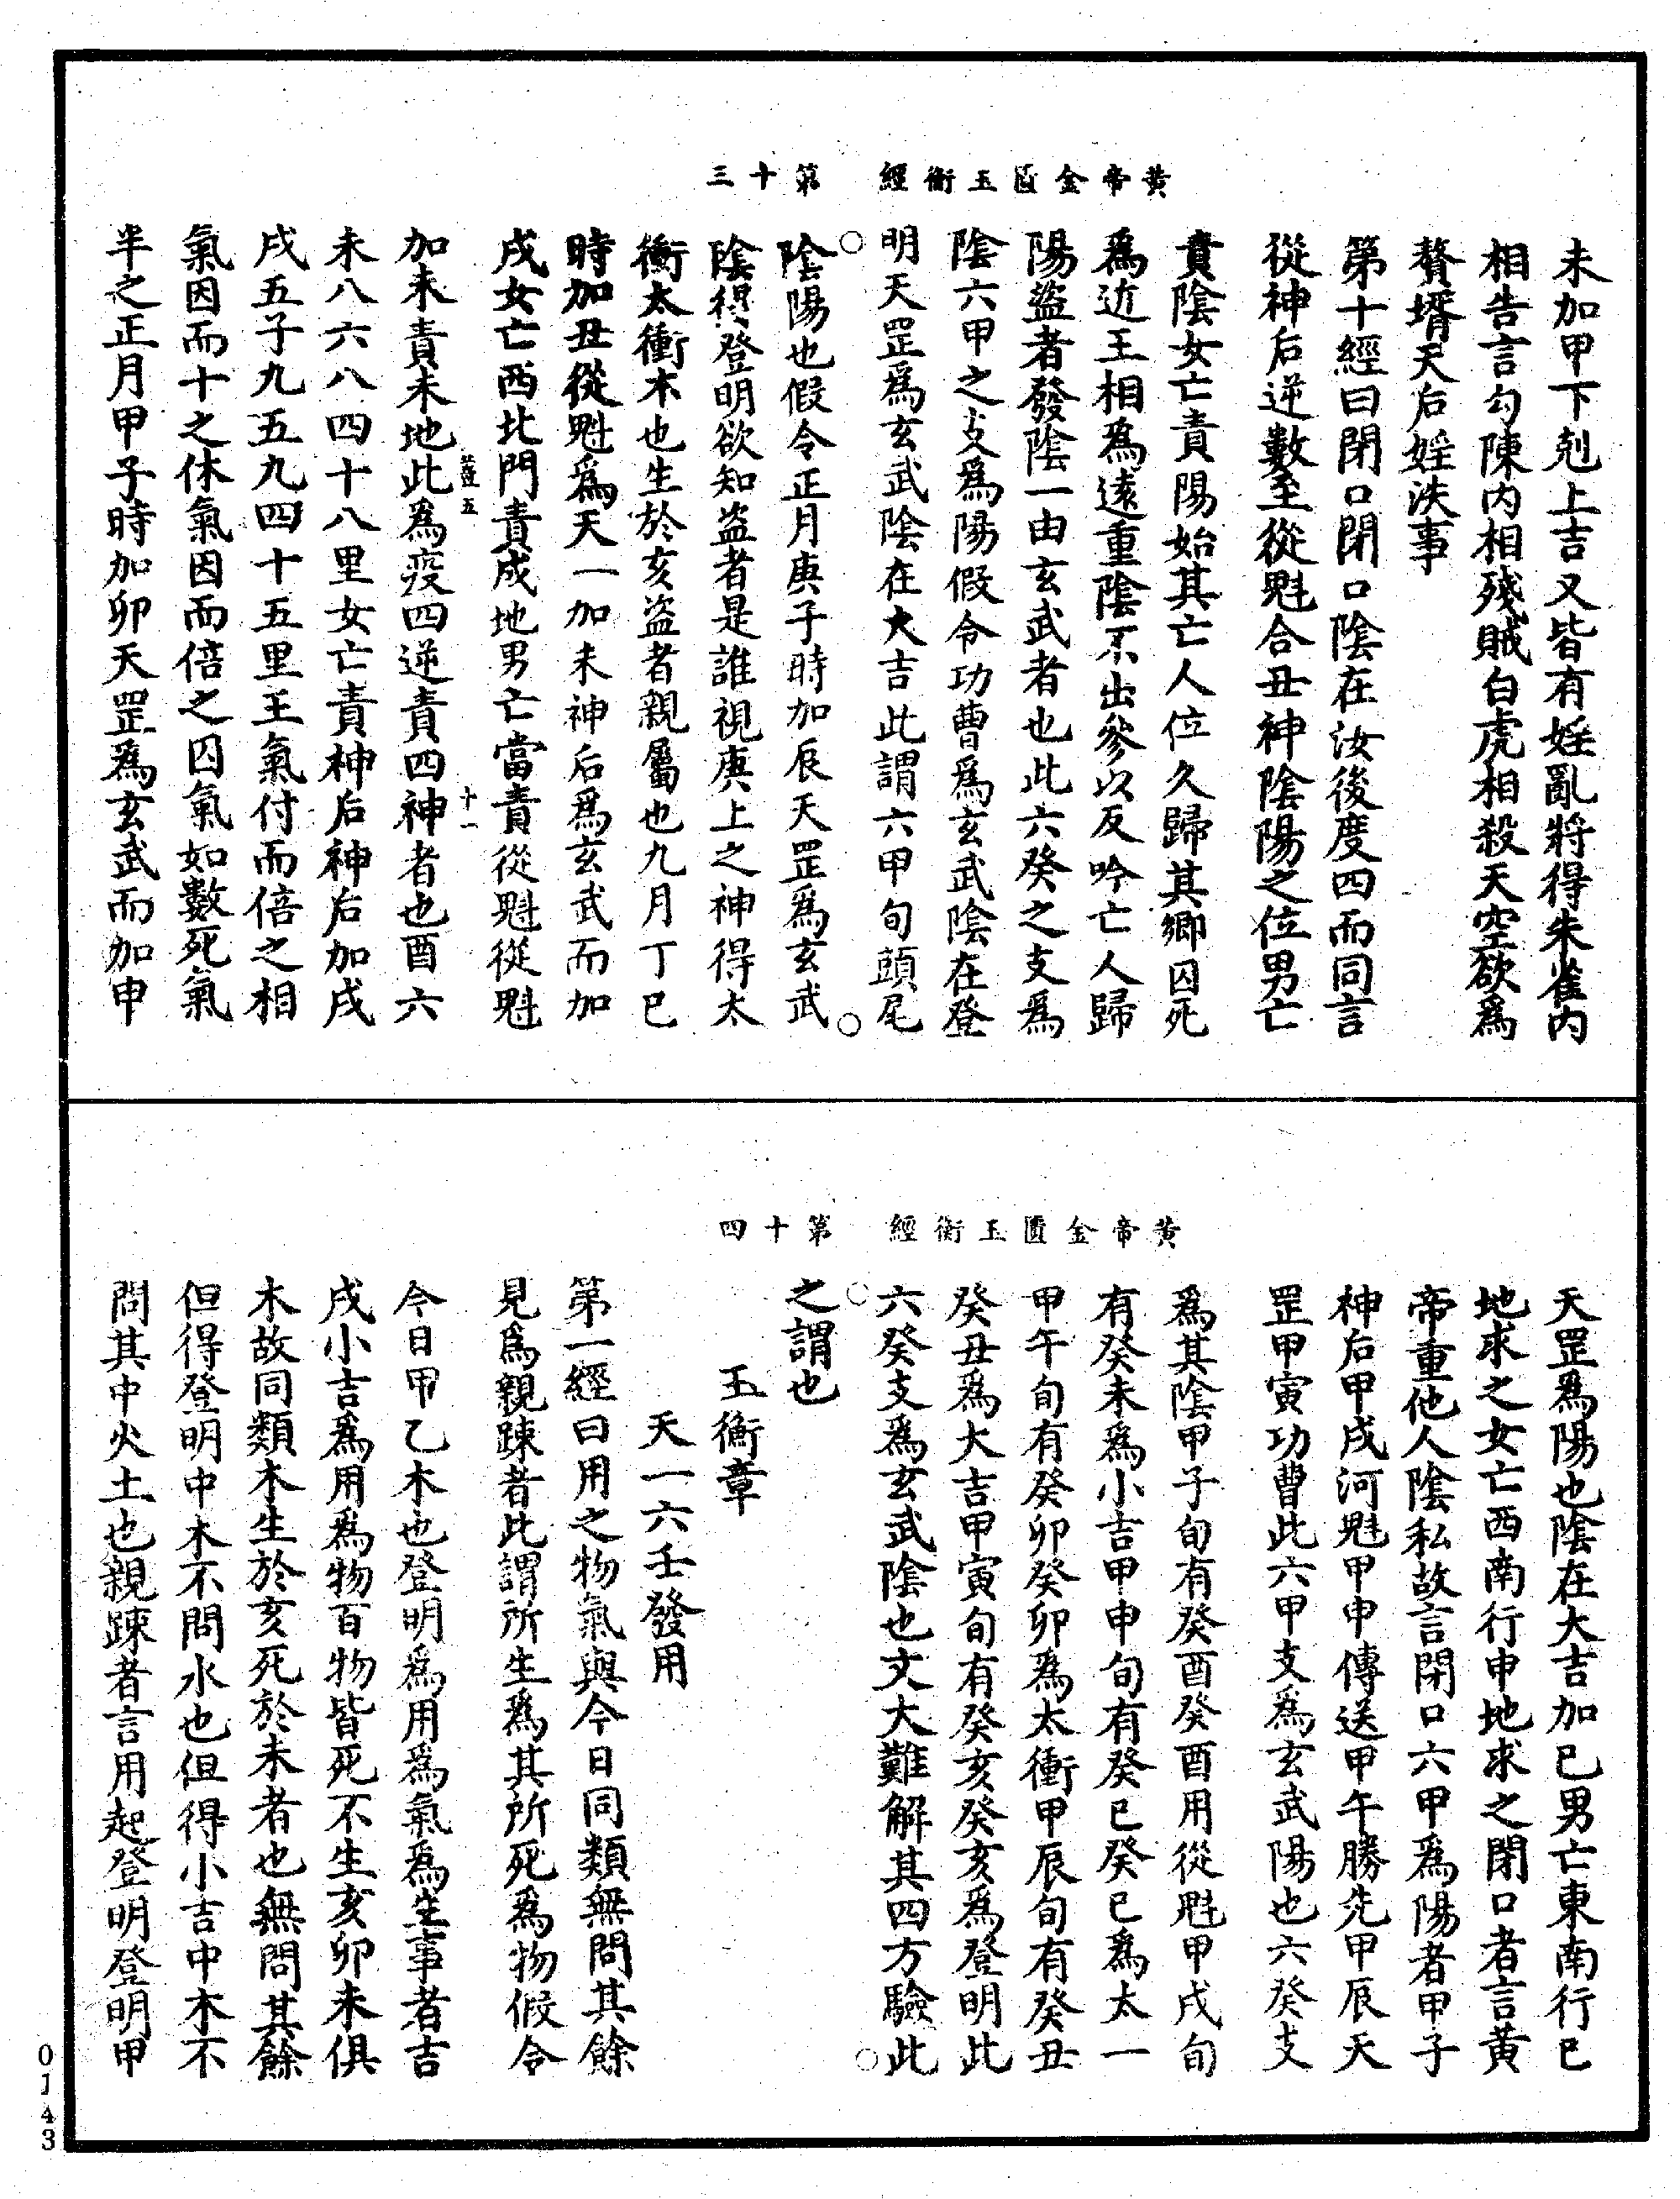 黃帝金匱玉衡經　第十三
未加甲下剋上吉又皆有婬亂將得朱雀内
相告言勾陳内相殘賊白虎相殺天空欲爲
贅壻天后婬泆事
第十經曰閉口閉口陰在汝後度四而同言
從神后逆數至從魁合丑神陰陽之位男亡
責陰女亡責陽始其亡人位久歸其鄉囚死
爲近王相爲遠重陰不出參以反吟亡人歸
陽盜者發陰一由玄武者也此六癸之支爲
陰六甲之支爲陽假令功曹爲玄武陰在登
明天罡爲玄武陰在大吉此謂六甲旬頭尾
陰陽也假令正月庚子時加辰天罡爲玄武
陰得登明欲知盜者是誰視庚上之神得太
衝太衝木也生於亥盜者親屬也九月丁巳
時加丑從魁爲天一加未神后爲玄武而加
戌女亡西北門責戌地男亡當責從魁從魁
加未責未地此爲疫四逆責四神者也酉六
薑五　十一
未八六八四十八里女亡責神后神后加戌
戌五子九五九四十五里王氣付而倍之相
氣因而十之休氣因而倍之囚氣如數死氣
半之正月甲子時加卯天罡爲玄武而加申
黃帝金匱玉衡經　第十四
天罡爲陽也陰在大吉加巳男亡東南行巳
地求之女亡西南行申地求之閉口者言黃
帝重他人陰私故言閉口六甲爲陽者甲子
神后甲戌河魁甲申傳送甲午勝先甲辰天
罡甲寅功曹此六甲支爲玄武陽也六癸支
爲其陰甲子旬有癸酉癸酉用從魁甲戌旬
有癸未爲小吉甲申旬有癸巳癸巳爲太一
甲午旬有癸卯癸卯爲太衝甲辰旬有癸丑
癸丑爲大吉甲寅旬有癸亥癸亥爲登明此
六癸支爲玄武陰也文大難解其四方驗此
之謂也
玉衡章
天一六壬發用
第一經曰用之物氣與今日同類無問其餘
見爲親踈者此謂所生爲其所死爲物假令
今日甲乙木也登明爲用爲氣爲生事者吉
戌小吉爲用爲物百物皆死不生亥卯未俱
木故同類木生於亥死於未者也無問其餘
但得登明中木不問水也但得小吉中木不
問其中火土也親踈者言用起登明登明甲
0143